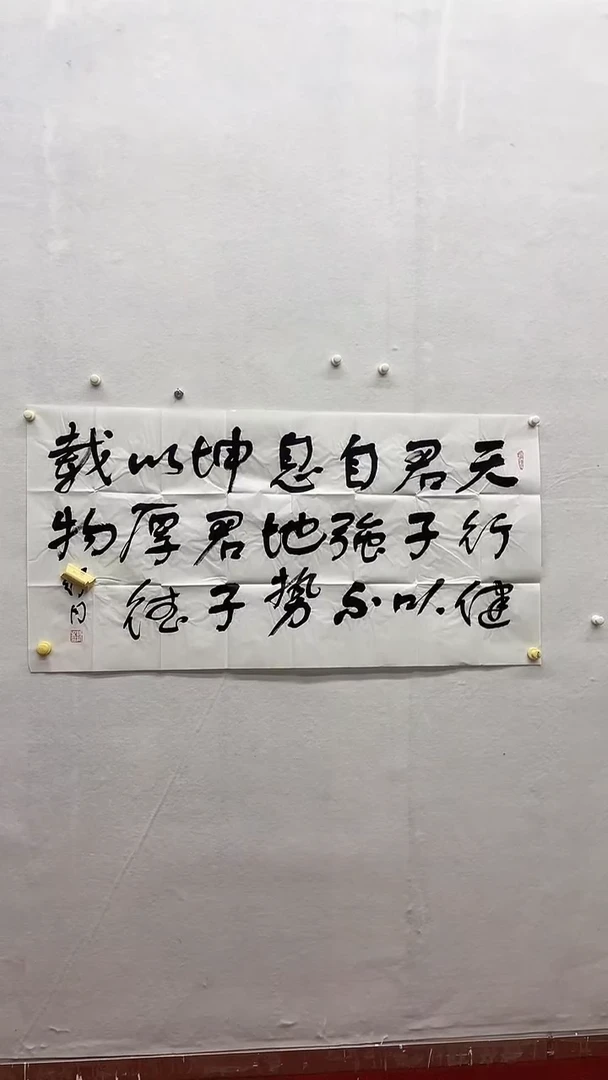 天行健
君子以
自強不
息地势
坤君子
以厚德
載物